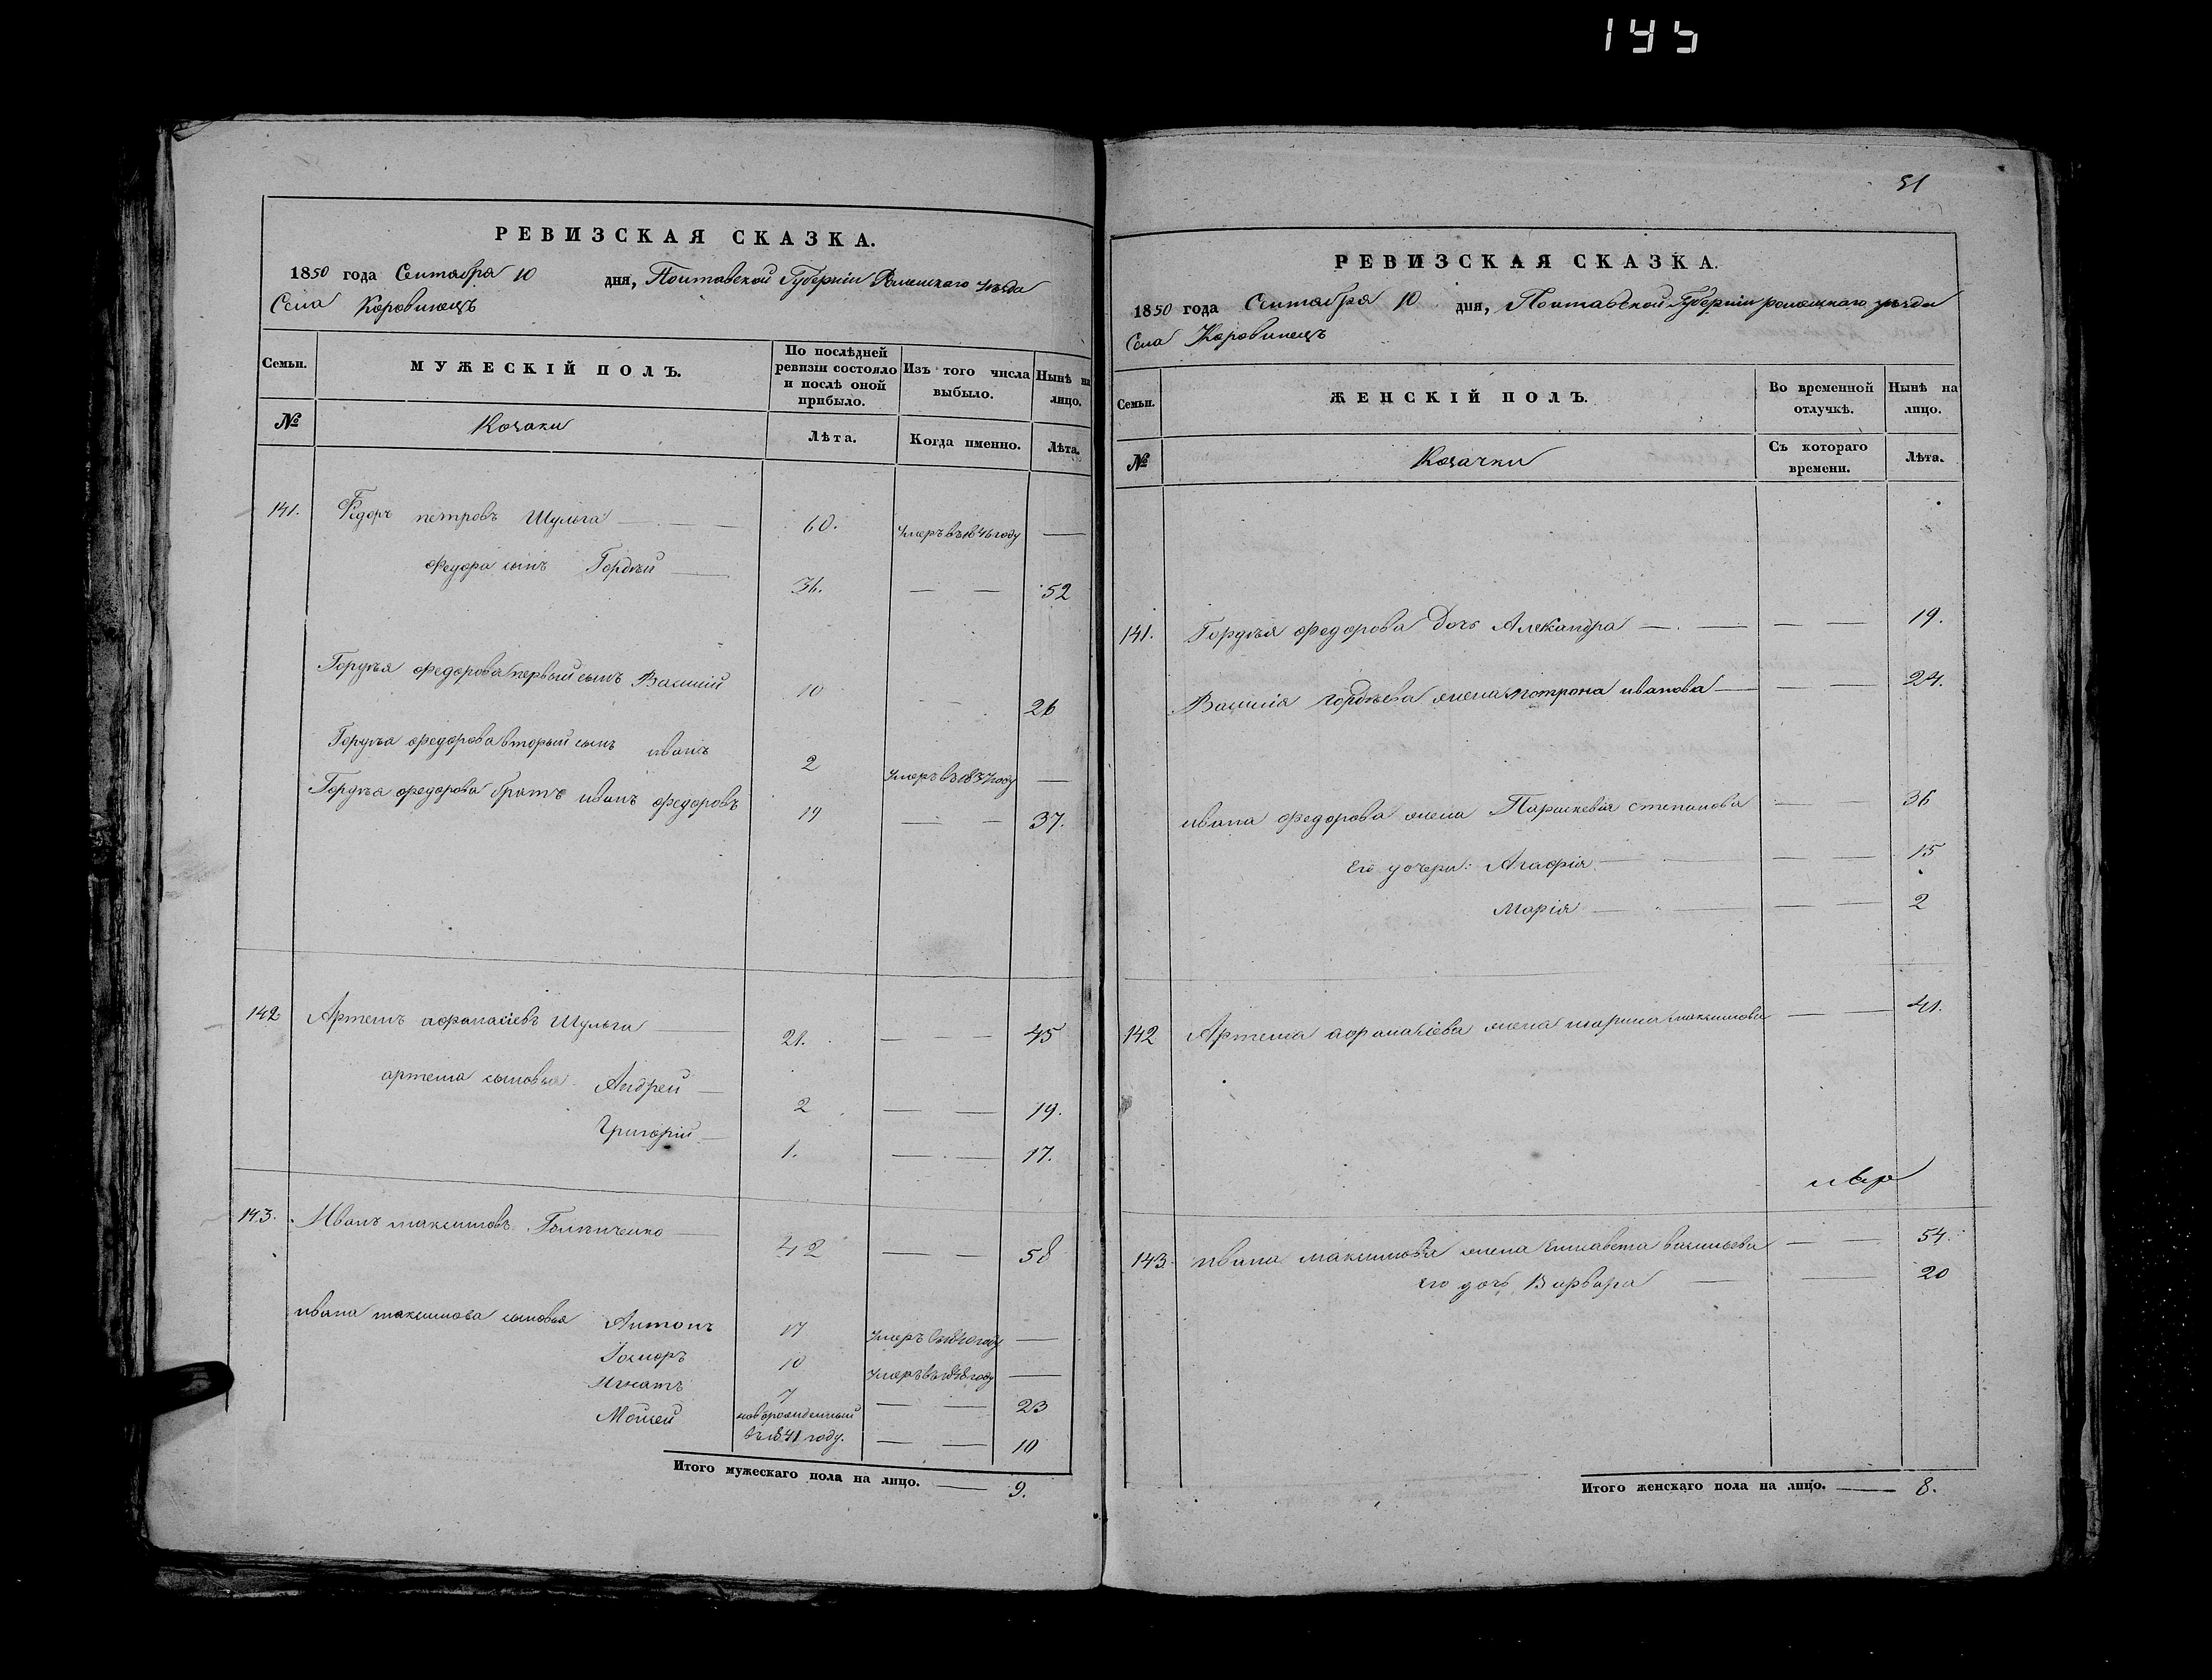 145
РЕВИЗСКАЯ СКАЗКА.
1850 года Сентября 10 дня, Полтавской Губерніи Роменскаго уѣзда
Села Коровинецъ
Семьи.
МУЖЕСКІЙ ПОЛЪ.
По послѣдней ревизіи состояло и послѣ оной прибыло.
Изъ того числа выбыло.
Нынѣ на лицо.
№
Козаки
Лѣта.
Когда именно.
Лѣта.
141. Федоръ петровъ Шульга — 60. умеръ въ 1846 году —
Федора сынъ Гордѣй — 36. — — 52
Гордѣя федорова первый сынъ Василій 10 26
Гордѣя федорова вторый сынъ иванъ 2 умеръ въ 1837 году —
Гордѣя федорова братъ иванъ федоровъ 19 — — 37.
142 Артемъ афанасіевъ Шульга — 21. — — 45
артема сыновья Андрей — 2 — — 19.
Григорій — 1. — — 17.
143. Иванъ максимовъ — 42 — — 58
ивана максимова сыновья Антонъ 17 умеръ въ 1840 году —
10 умеръ въ 1848 году —
Игнатъ 7 — — 23
Мойсей новорожденный въ 1841 году. — — 10
Итого мужескаго пола на лицо. — 9.
51
РЕВИЗСКАЯ СКАЗКА.
1850 года Сентября 10 дня, Полтавской Губерніи роменскаго уѣзда
Села Коровинецъ
Семьи.
ЖЕНСКІЙ ПОЛЪ.
Во временной отлучкѣ.
Нынѣ на лицо.
№
Козачки
Съ котораго времени.
Лѣта.
141. Гордѣя федорова дочь Александра — — — 19.
Василія гордѣева жена мотрона иванова — — — 24.
ивана федорова жена Параскевія степанова — — 36
Его дочери: Агафія — — — 15
Марія — — — 2
142 Артема афанасіева жена марина максимова — — 41.
143. ивана максимова жена Елисавета васильева — — 54.
его дочь Варвара — — 20
Итого женскаго пола на лицо. — 8.